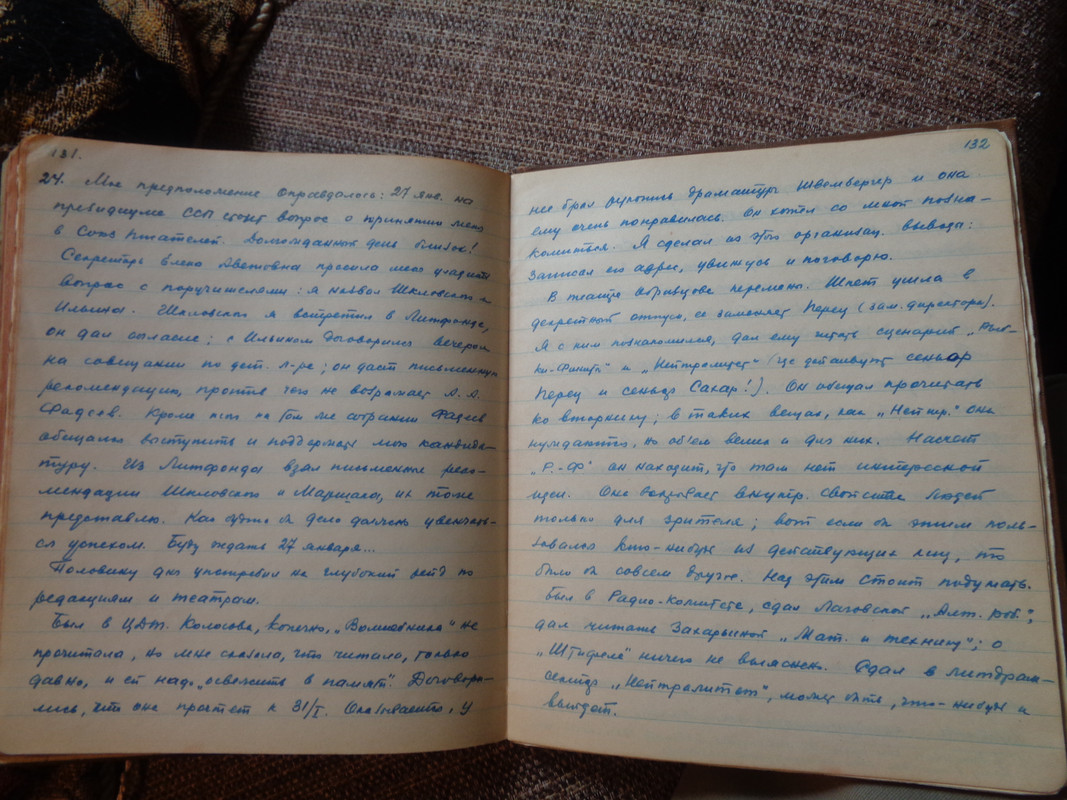 131.
24. Мое предположение оправдалось: 27 янв. на
президиуме ССП стоит вопрос о принятии меня
в Союз Писателей. Долгожданный день близок!
Секретарь Елена Аветовна просила меня уладить
вопрос с поручителями: я назвал Шкловского и
Ильина. Шкловского я встретил в Литфонде,
он дал согласие; с Ильиным договорился вечером
на совещании по дет. л-ре; он даст письменную
рекомендацию, против чего не возражает А.А.
Фадеев. Кроме того на том же собрании Фадеев
обещался выступить и поддержать мою кандида-
туру. Из Литфонда взял письменные реко-
мендации Шкловского и Маршака, их тоже
представлю. Как будто бы дело должно увенчать-
ся успехом. Буду ждать 27 января...
Половину дня употребил на глубокий рейд по
редакциям и театрам.
Был в ЦДТ. Колосова, конечно, „Волшебника" не
прочитала, но мне сказала, что читала, только
давно, и ей надо „освежить в памяти". Договори-
лись, что она прочтет к 31/I. Оказывается, у
132
нее брал драматург Швембергер и она
ему очень понравилась. Он хотел со мной позна-
комиться. Я сделал из этого организац. выводы:
записал его адрес, увижусь и поговорю.
В театре Образцова перемены. Шпет ушла в
декретный отпуск, ее заменяет Перец (зам. директора).
Я с ним познакомился, дал ему читать сценарий „Рык-
и „Нейтралитет" (где действуют сеньор
Перец и сеньор Сахар!). Он обещал прочитать
ко вторнику; в таких вещах, как „Нейтр." они
нуждаются, но об'ем велик и для них. Насчет
„Р.-Ф" он находит, что там нет интересной
идеи. Она вскрывает внутр. свойства людей
только для зрителя; вот если бы этим поль-
зовался кто-нибудь из действующих лиц, то
было бы совсем другое. Над этим стоит подумать.
Был в Радио-Комитете, сдал Лаговской „Алт. роб.";
дал читать Захарьиной „Мат. и технику"; о
„Штифеле" ничего не выяснено. Сдал в литдрам-
сектор „Нейтралитет", может быть, что-нибудь и
выйдет.